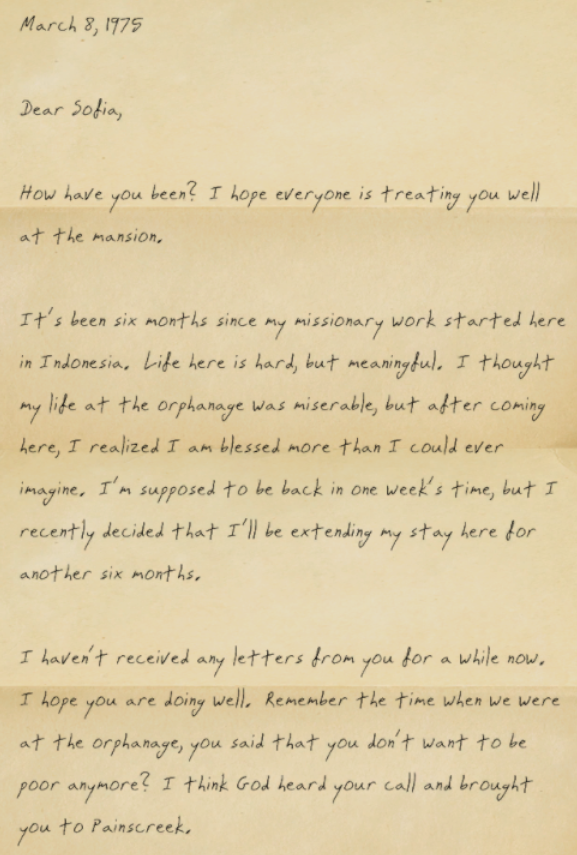 March 8, 1975
Dear Sofia,
How have you been? I hope everyone is treating you well
at the mansion.
It's been six months since my missionary work started here
in Indonesia. Life here is hard, but meaningful. I thought
my life at the orphanage was miserable, but after coming
here, I realized I am blessed more than I could ever
imagine. I'm supposed to be back in one week's time, but I
recently decided that I'll be extending my stay here for
another six months.
I haven't received any letters from you for a while now.
I hope you are doing well. Remember the time when we were
at the orphanage, you said that you don't want to be
poor anymore? I think God heard your call and brought
you to Painscreek.